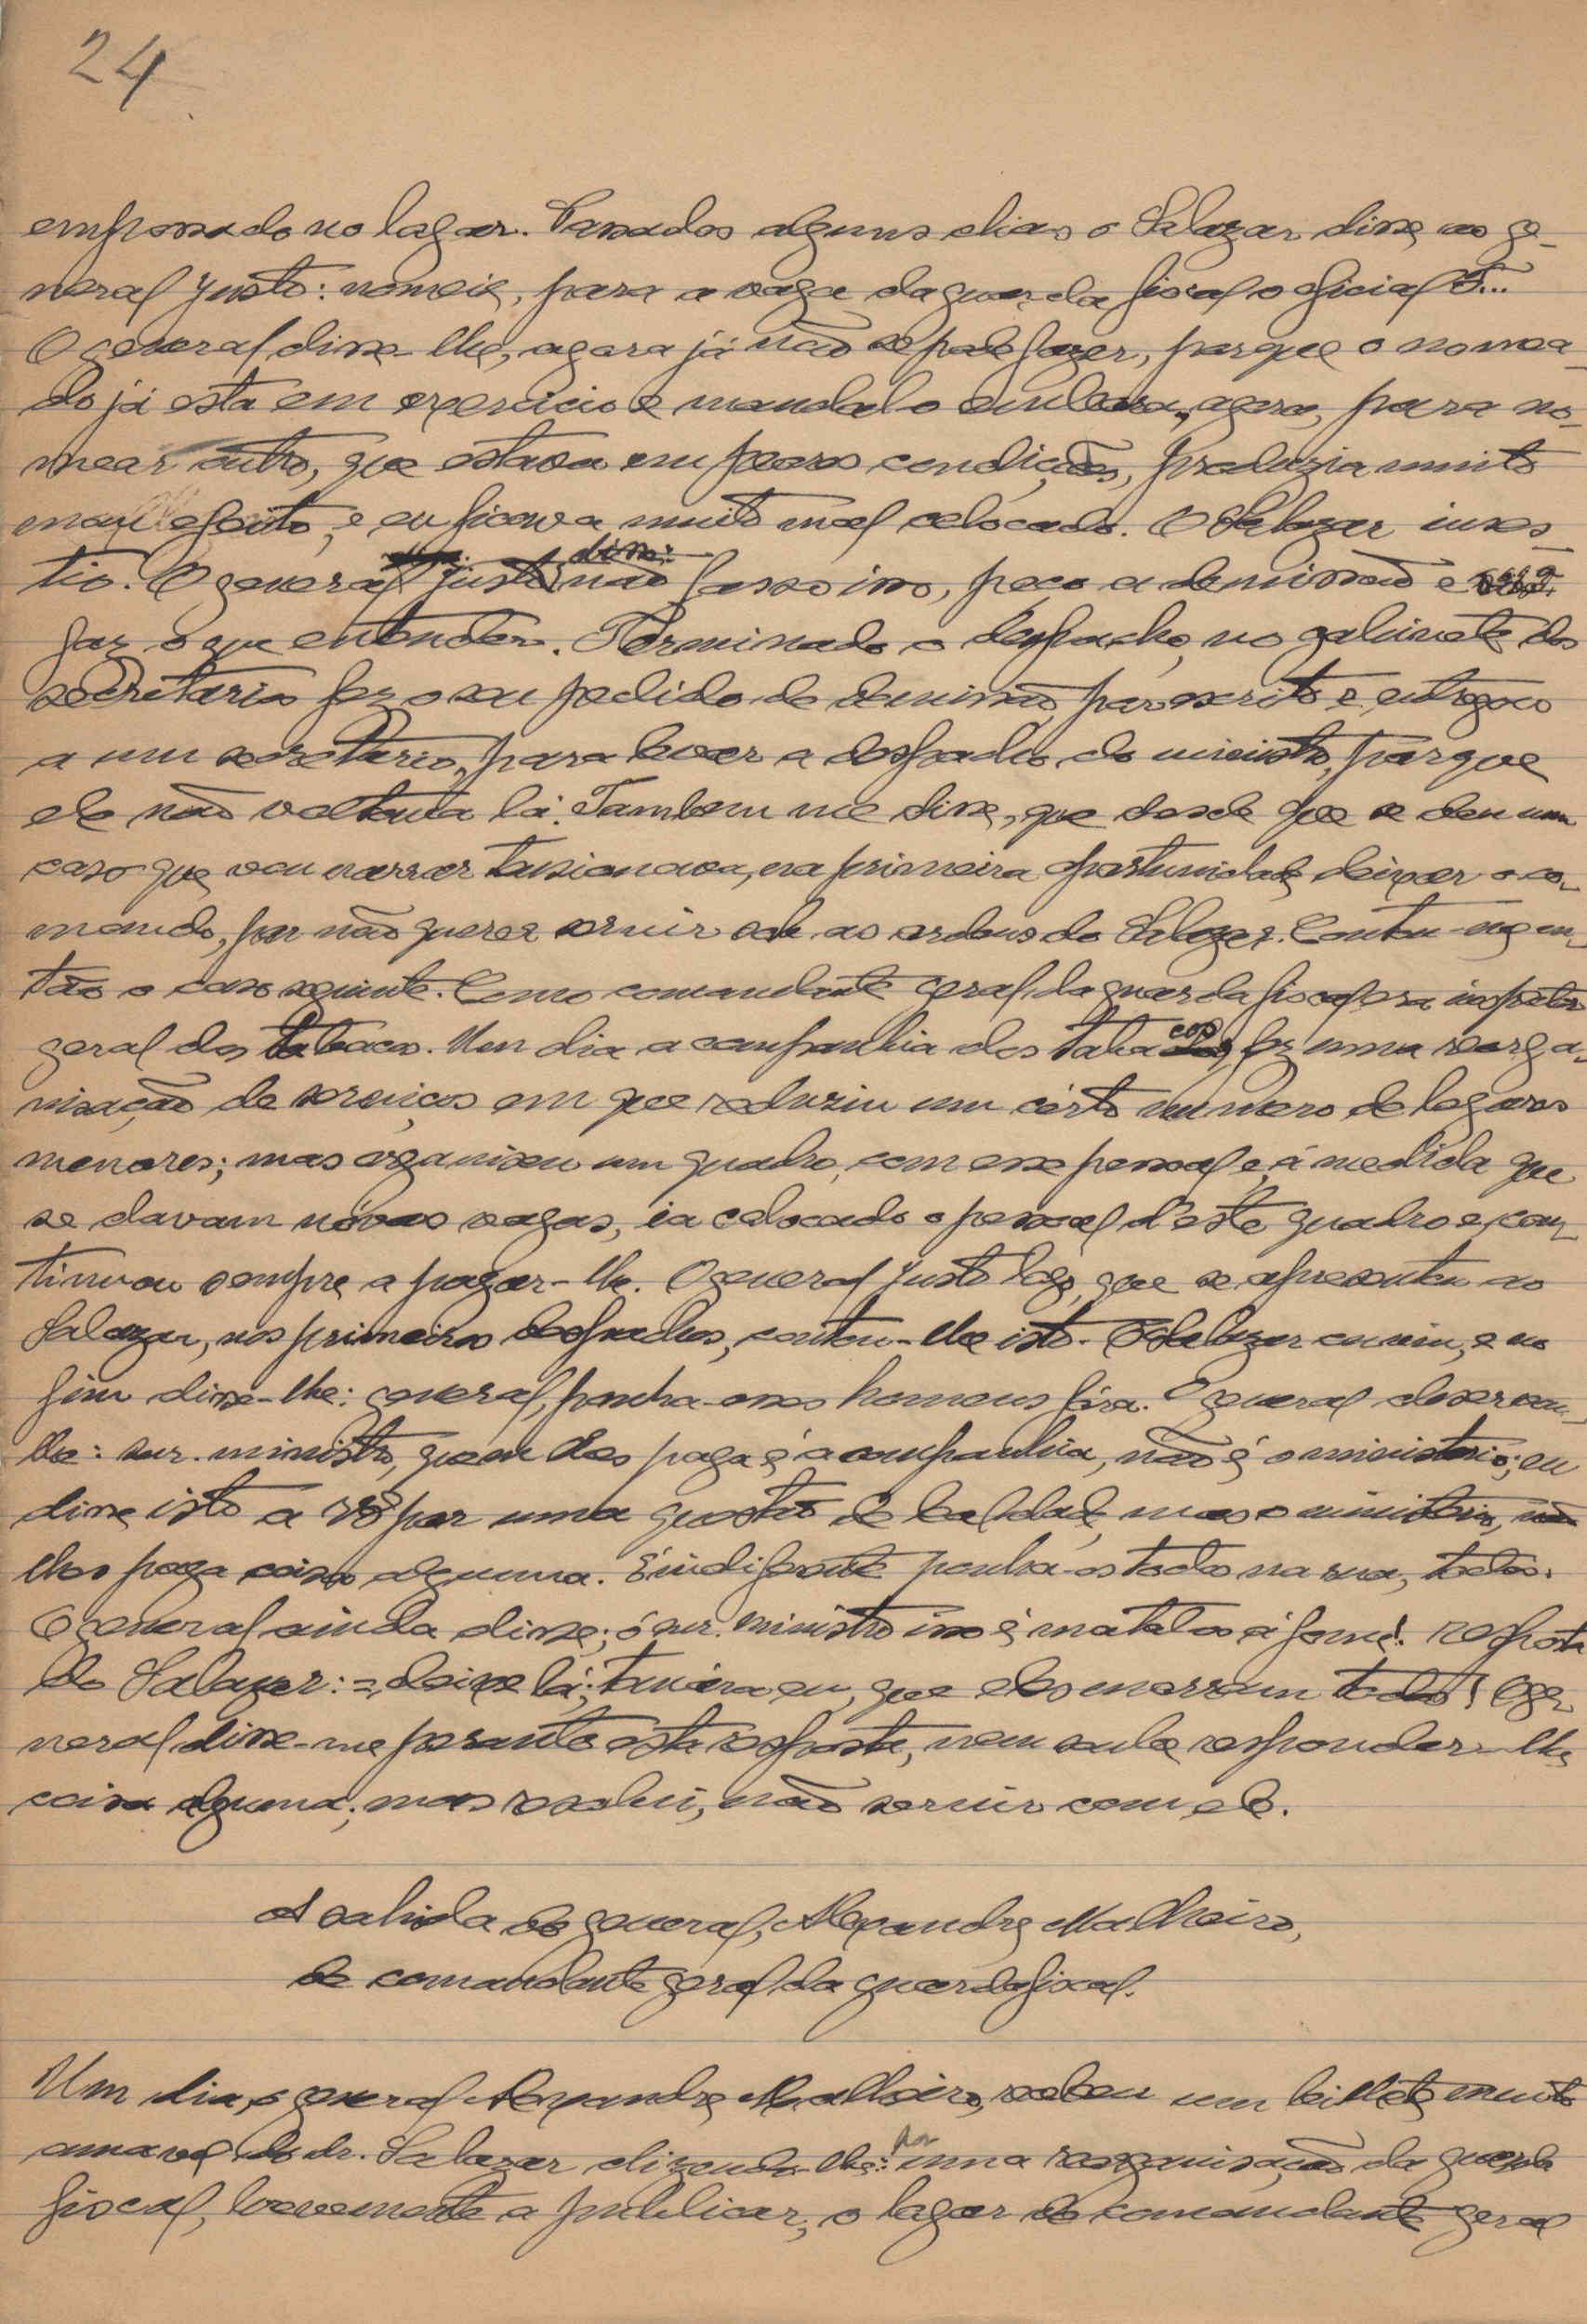 24
empossado no lugar. Passados alguns dias o Salazar disse ao ge-
neral Justo: nomeie, para a vaga da guarda fiscal o oficial F...
O general disse-lhe, agora já não se pode fazer, porque o nomea-
do já esta em exercicio e mandal-o embora, agora, para no-
mear outro, que estava em peores condições, produzia muito
mau efeito, e eu ficava muito mal colocado. O Salazar insis-
tio. O general Justo, disse: não fasso isso, peço a demissão e
faz o que entender. Terminado o despacho, no gabinete dos
secretarios fez o seu pedido de demissão por escrito e, entregou
a um secretario, para levar a despacho do ministro, porque
ele não voltava lá. Tambem me disse, que desde que se deu um
caso que vou narrar tensionava, na primeira oportunidade deixar o co-
mando, por não querer servir sob as ordens do Salazar. Contou-me en-
tão o caso seguinte. Como comandante geral da guarda fiscal era inspetor
geral dos tabacos. Um dia a companhia dos tabacos, fez uma reorga-
nisação de serviços em que reduziu um cérto numero de logares
menores; mas organisou um quadro, com esse pessoal e, á medida que
se davam nóvas vagas, ia colocado o pessoal d'este quadro e, con-
tinuou sempre a pagar-lhe. O general Justo logo, que se apresentou ao
Salazar, nos primeiros despachos, contou-lhe isto. O Salazar ouviu, e no
fim disse-lhe: general, ponha esses homens fóra. O general observou-
lhe: snr. ministro, quem lhes paga é a companhia, não é o ministerio; eu
disse isto a V. Ex.ª por uma questão de lealdade, mas o ministerio, não
lhes paga coisa alguma. É indiferente ponha-os todos na rua, todos.
O general ainda disse; ó snr. ministro isso é matal-os á fome!. resposta
do Salazar: = deixe lá; tomára eu, que eles morram todos! O ge-
neral disse-me perante esta resposta, nem soube responder-lhe
coisa alguma; mas resolvi, não servir com ele.
A sahida do general, Alexandre Malheiro,
de comandante geral da guarda fiscal.
Um dia, o general Alexandre Malheiro, recebeu um bilhete muito
amavel do dr. Salazar dizendo-lhe: por uma reorganisação da guarda
fiscal, brevemente a publicar, o lugar de comandante geral